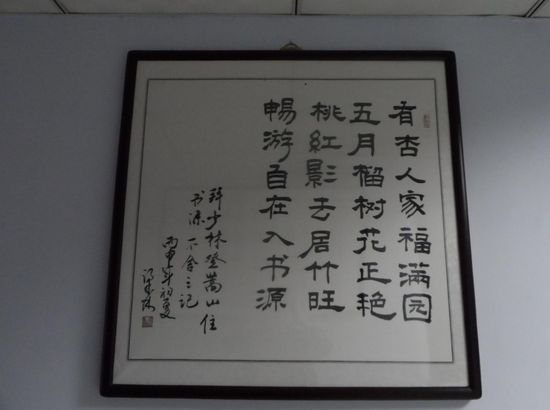 有杏人家福满园
五月榴树花正艳
桃红影去居竹旺
畅游自在入书源
拜少林登嵩山住
书源不舍之记
丙申年初夏